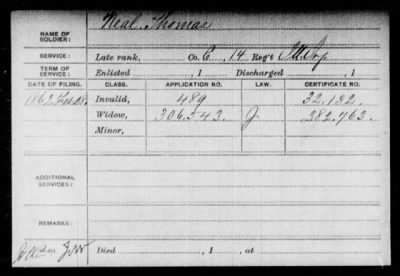 Neal Thomas
NAME OF SOLDIER:
SERVICE: Late rank, Co. E, 14 Reg't
TERM OF SERVICE: Enlisted , 1 Discharged , 1
DATE OF FILING. CLASS. APPLICATION NO. LAW. CERTIFICATE NO.
1862 Feb 28 Invalid, 489 32.132
Widow, 306.543 J 282.763
Minor,
ADDITIONAL SERVICES:
REMARKS:
Died , 1 , at